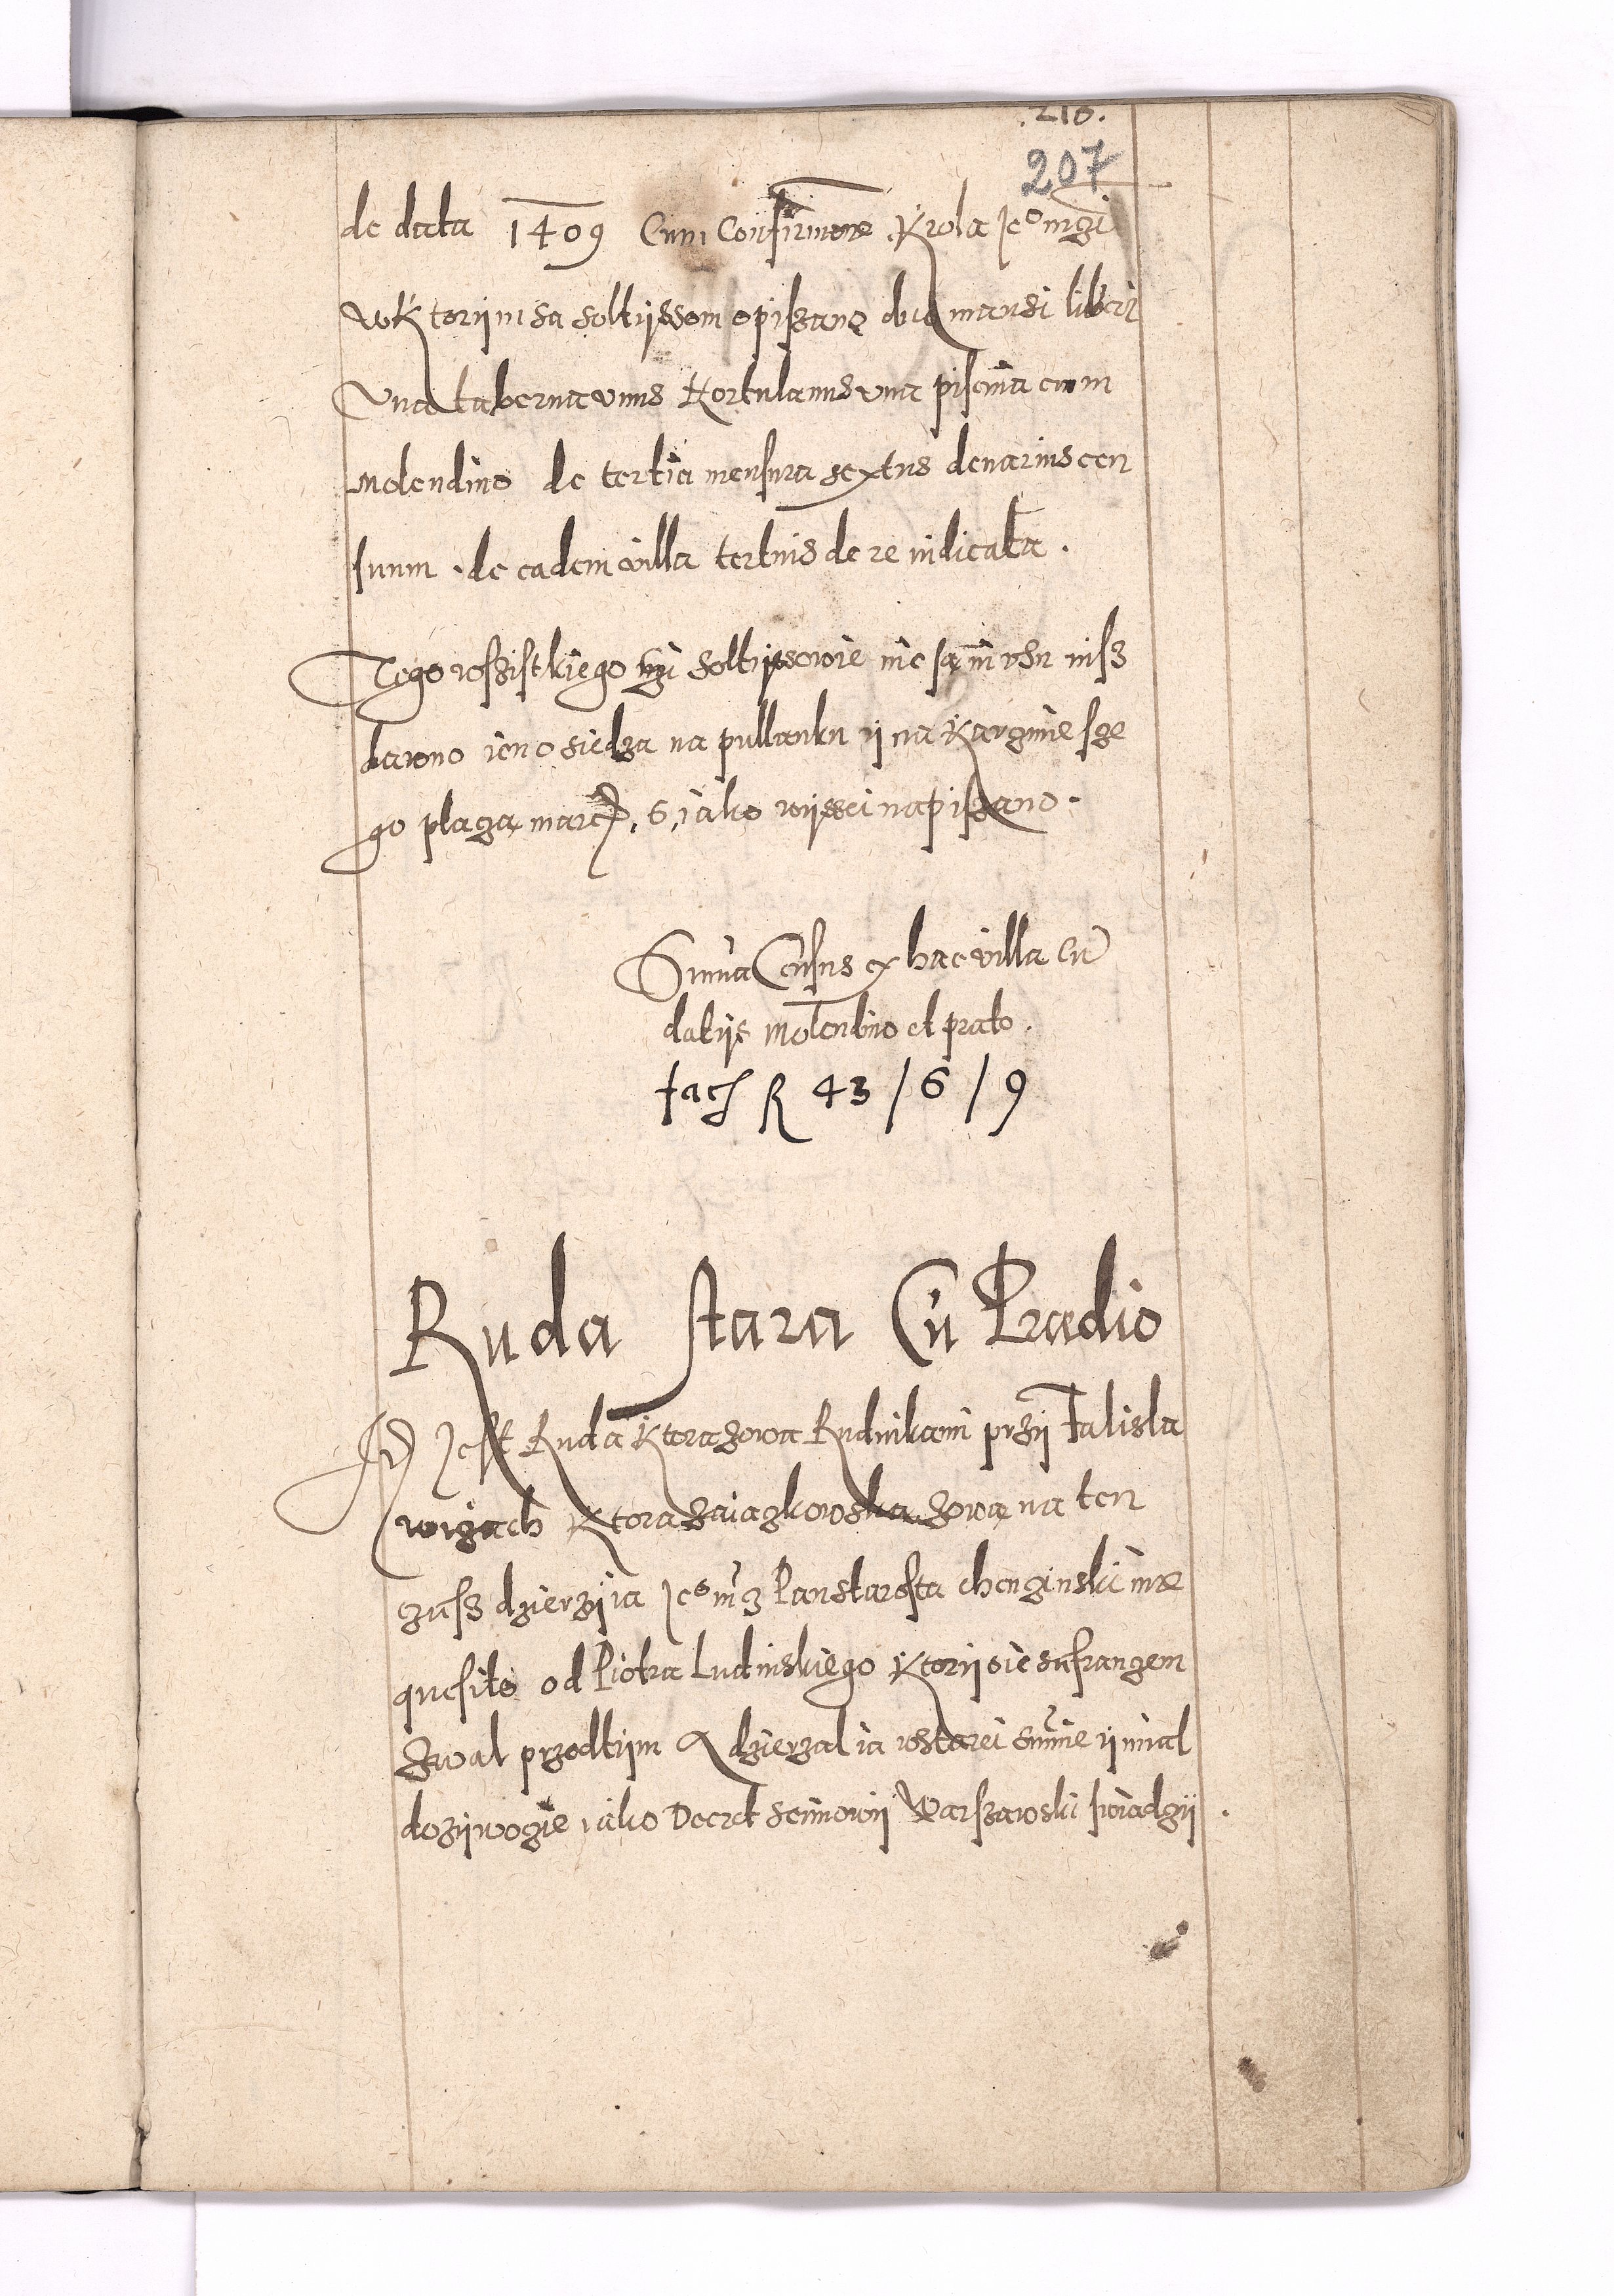 .210.
207
de data 1409 Cum Confirmone Krola Jeo mczi
wktorijm sa soltijssom opiszane duo mansi liberi
Vna taberna vnus Hortulanus vna piscina cum
molendino de tertia mensura sextus denarius cen
suum . de eadem villa tertius de re iudicata .
Tego wsszistkiego czi soltijssowie nie są in vsu nisz
dawno ieno siedza na pullanku ij na karczmie sze
go placzą marcz. 6. iako wijssei napiszano .
Sum̃a Census ex hac villa cũ
datijs molendino et prato .
facz R 43 / 6 / 9
Ruda stara Cũ Prædio
Jt Jest Ruda ktora zowa Rudnikami przij falisla
wiczach ktora zaiaczkowska zową na ten
czusz dzierzij ia Jeo mcz Pan starosta chenczinski in re
quesito od Piotra Ludinskiego ktorij sie sufrangem
zwal przodtijm A dzierzal ia wstarei sum̃ie ij mial
dozijwocie iako Decret seimowij Warszawski swiadczij .